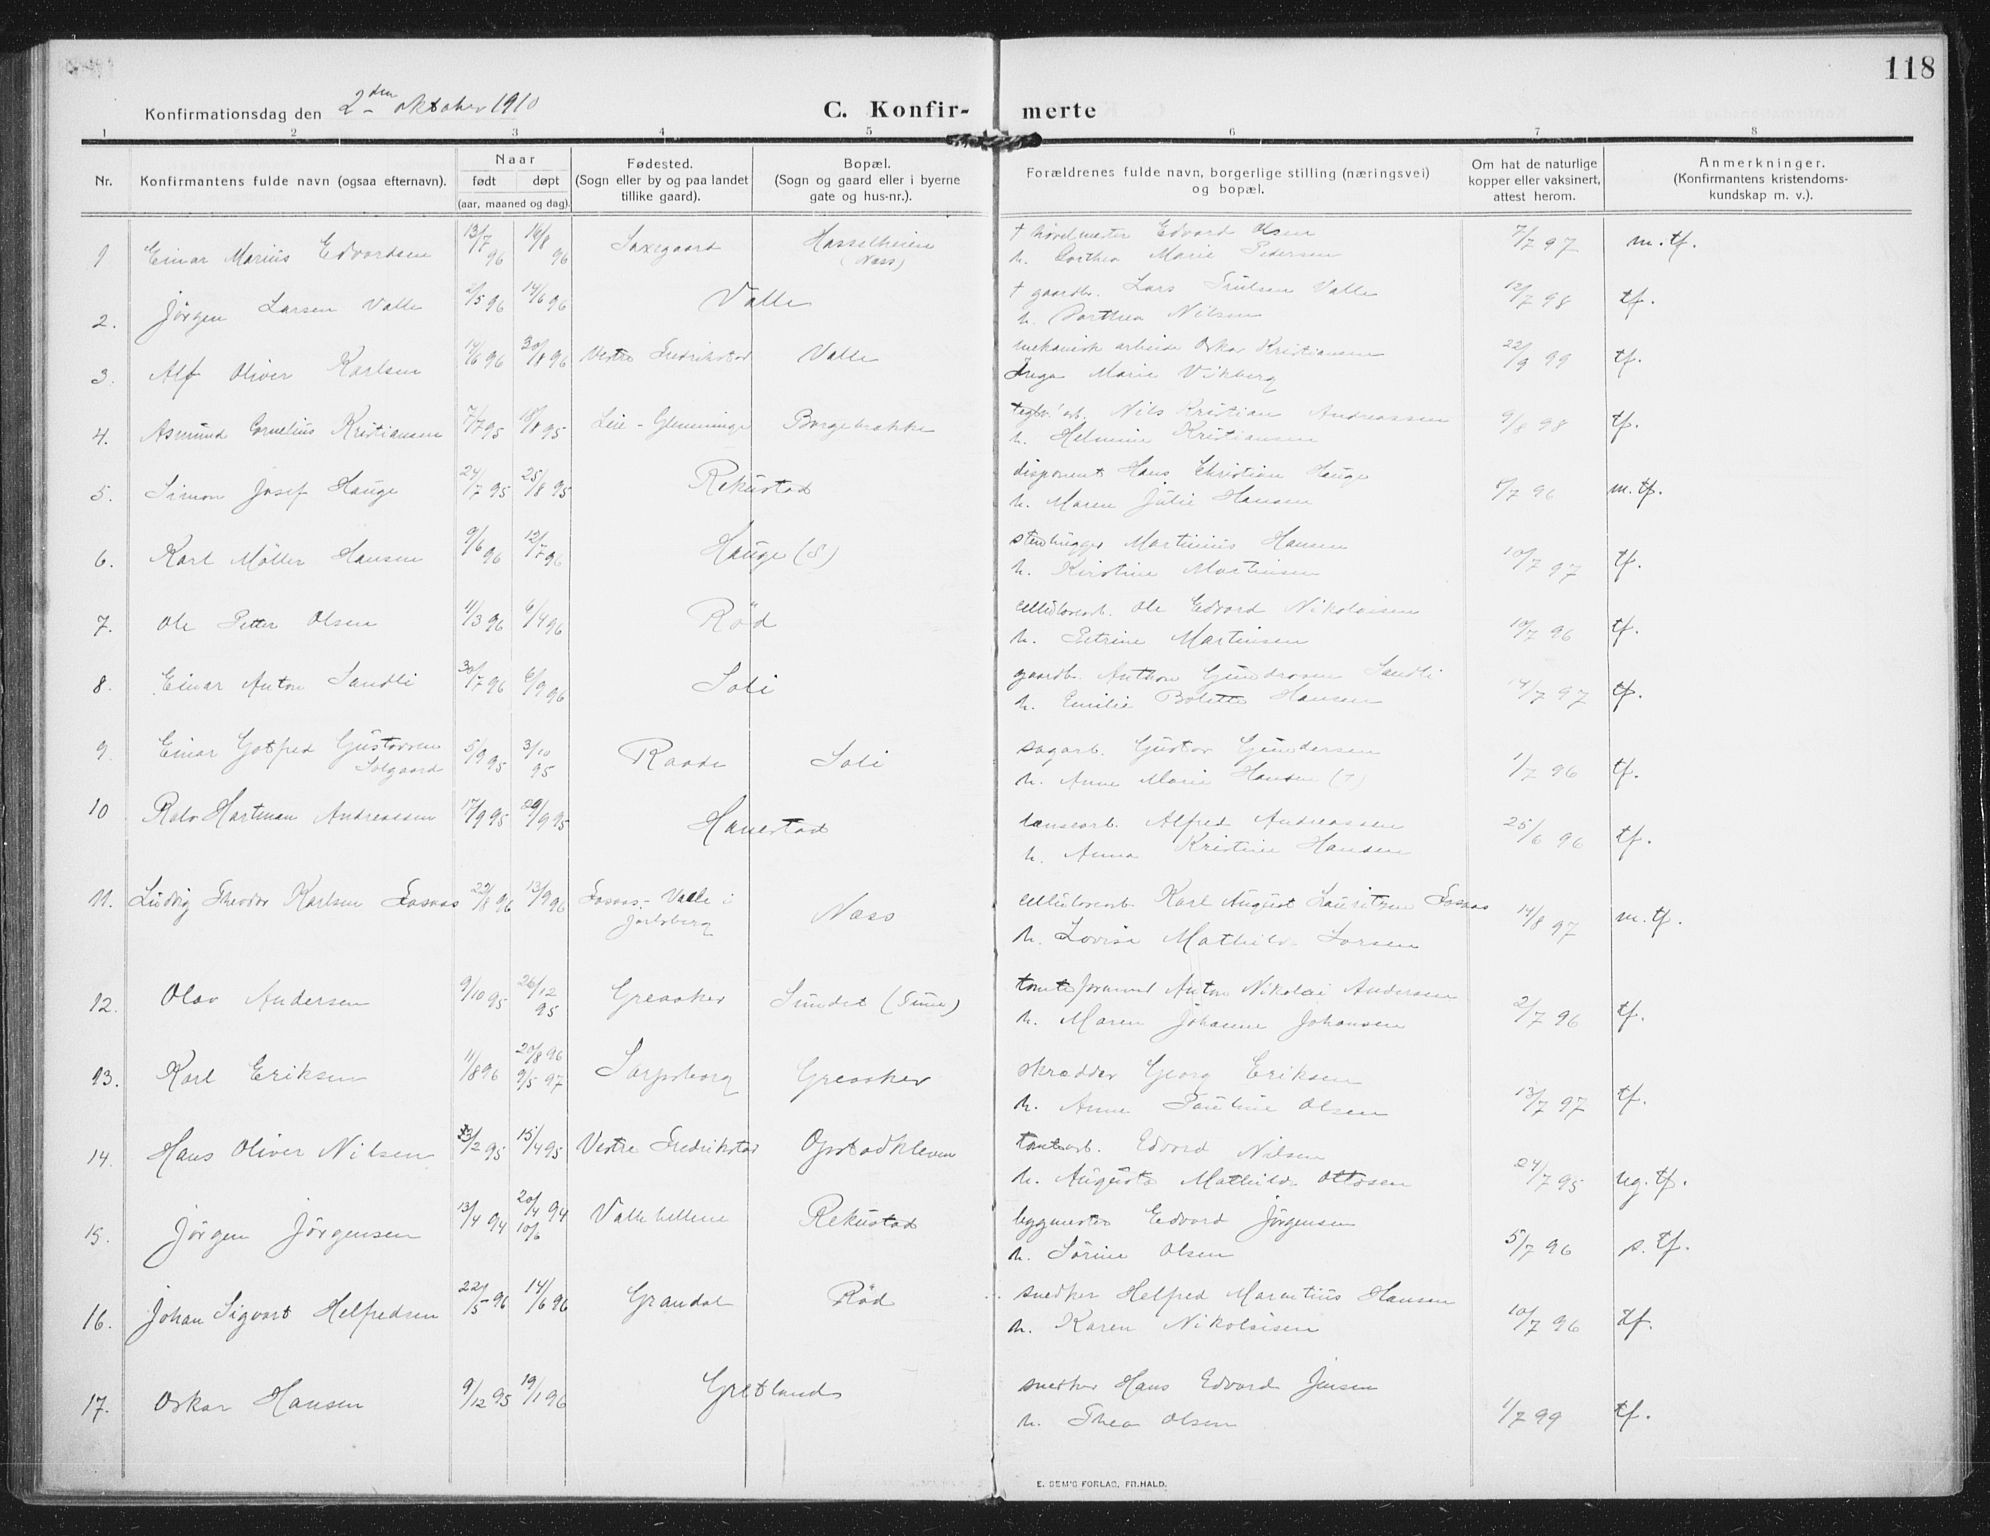 118
Konfirmationsdag den 2den oktober 1910
C. Konfir- merte
1 2 3 4 5 6 7 8
Nr. Konfirmantens fulde navn (ogsaa efternavn). Naar født døpt (aar, maaned og dag). Fødested. (Sogn eller by og paa landet tillike gaard). Bopæl. (Sogn og gaard eller i byerne gate og hus-nr.). Forældrenes fulde navn, borgerlige stilling (næringsvei) og bopæl. Om hat de naturlige kopper eller vaksinert, attest herom. Anmerkninger. (Konfirmantens kristendoms- kundskap m. v.).
1 Einar Marius Edvardsen 13/7 96 16/8 96 Hasselheim (Næss) † høvelmester Edvard Olsen 7/7 97 m. tf.
h. Dorthea Marie Pedersen
2. Jørgen Larsen Valle 2/5 96 14/6 96 Valle † gaardb. Lars Truls­en Valle 12/7 98 tf.
h. Dorthea Nilsen
3. Alf Oliver Karlsen 30/8 96 Vestre Fredrikstad Valle mekanisk arbeide Oskar Kristiansen 22/9 99 tf.
Inga Marie Vikberg
4. Asmund Cornelius Kristiansen 7/7 95 18/8 95 Lie - Glemminge Borgebakke teglv.arb. Nils Kristian Andreassen 9/8 98 tf.
h. Helmine Kristiansen
5. Simon Josef Hauge 24/7 95 25/8 95 Rekustad disponent Hans Christian Hauge 96 m. tf.
h. Maren Julie Hansen
6. Karl Möller Hansen 9/6 96 12/7 96 Hauge (S) stenhugger Martinius Hansen 10/7 97 tf.
h. Kirstine Martinsen
7. Ole Petter Olsen 11/3 96 6/4 96 Röd cellulosearb. Ole Edvard Nikolaisen 10/7 96 tf.
h. Petrine Martinsen
8. Einar Anton Sandli 30/7 96 6/9 96 Soli gaardb. Anthon Gundersen Sandli 14/7 97 tf.
h. Emilie Bolette Hansen
9. Einar Gotfred Gustavsen 5/9 95 3/10 95 Raade Soli sagarb. Gustav Gundersen 1/7 96 tf.
Solgaard h. Anne Marie Hansen (?)
10 Rolv Hartman Andreassen 17/9 95 29/9 95 Hanestad lænsearb. Alfred Andreassen 25/6 96 tf.
h. Anna Kristine Hansen
11. Ludvig Theodor Karlsen Fosnas 22/8 96 13/9 96 Fosnas - Valle i Jarlsberg Næss cellulosearb. Karl August Lauritzen Fosnas 14/8 97 m. tf.
h. Lovise Mathilde Larsen
12. Olav Andersen 9/10 95 26/12 95 Greaaker Sundet (Tune) tomteformand Anton Nikolai Andersen 2/7 96 tf.
h. Maren Johanne Johansen
13. Karl Eriksen 11/8 96 20/8 96 9/5 97 Sarpsborg Greaaker skrædder Georg Eriksen 13/7 97 tf.
h. Anne Pauline Olsen
14. Hans Oliver Nilsen 95 15/4 95 Vestre Fredrikstad Opstadkleven tomtearb. Edvard Nilsen 24/7 95 ug. tf.
h. Augusta Mathilde Ottosen
15. Jörgen Jörgensen 13/4 94 20/4 94 10/6 Vallehellene Rekustad bygmester Edvard Jørgensen 5/7 96 s. tf.
h. Sørine Olsen
16. Johan Sigvart Helfredsen 22/5 96 14/6 96 Grændal Röd snedker Helfred Marentius Hansen 10/7 96 tf.
h. Karen Nikolaisen
17. Oskar Hansen 9/12 95 19/1 96 Gretland snedker Hans Edvard Jensen 1/7 99 tf.
h. Thea Olsen
E. SEM'S FORLAG, FR.HALD.